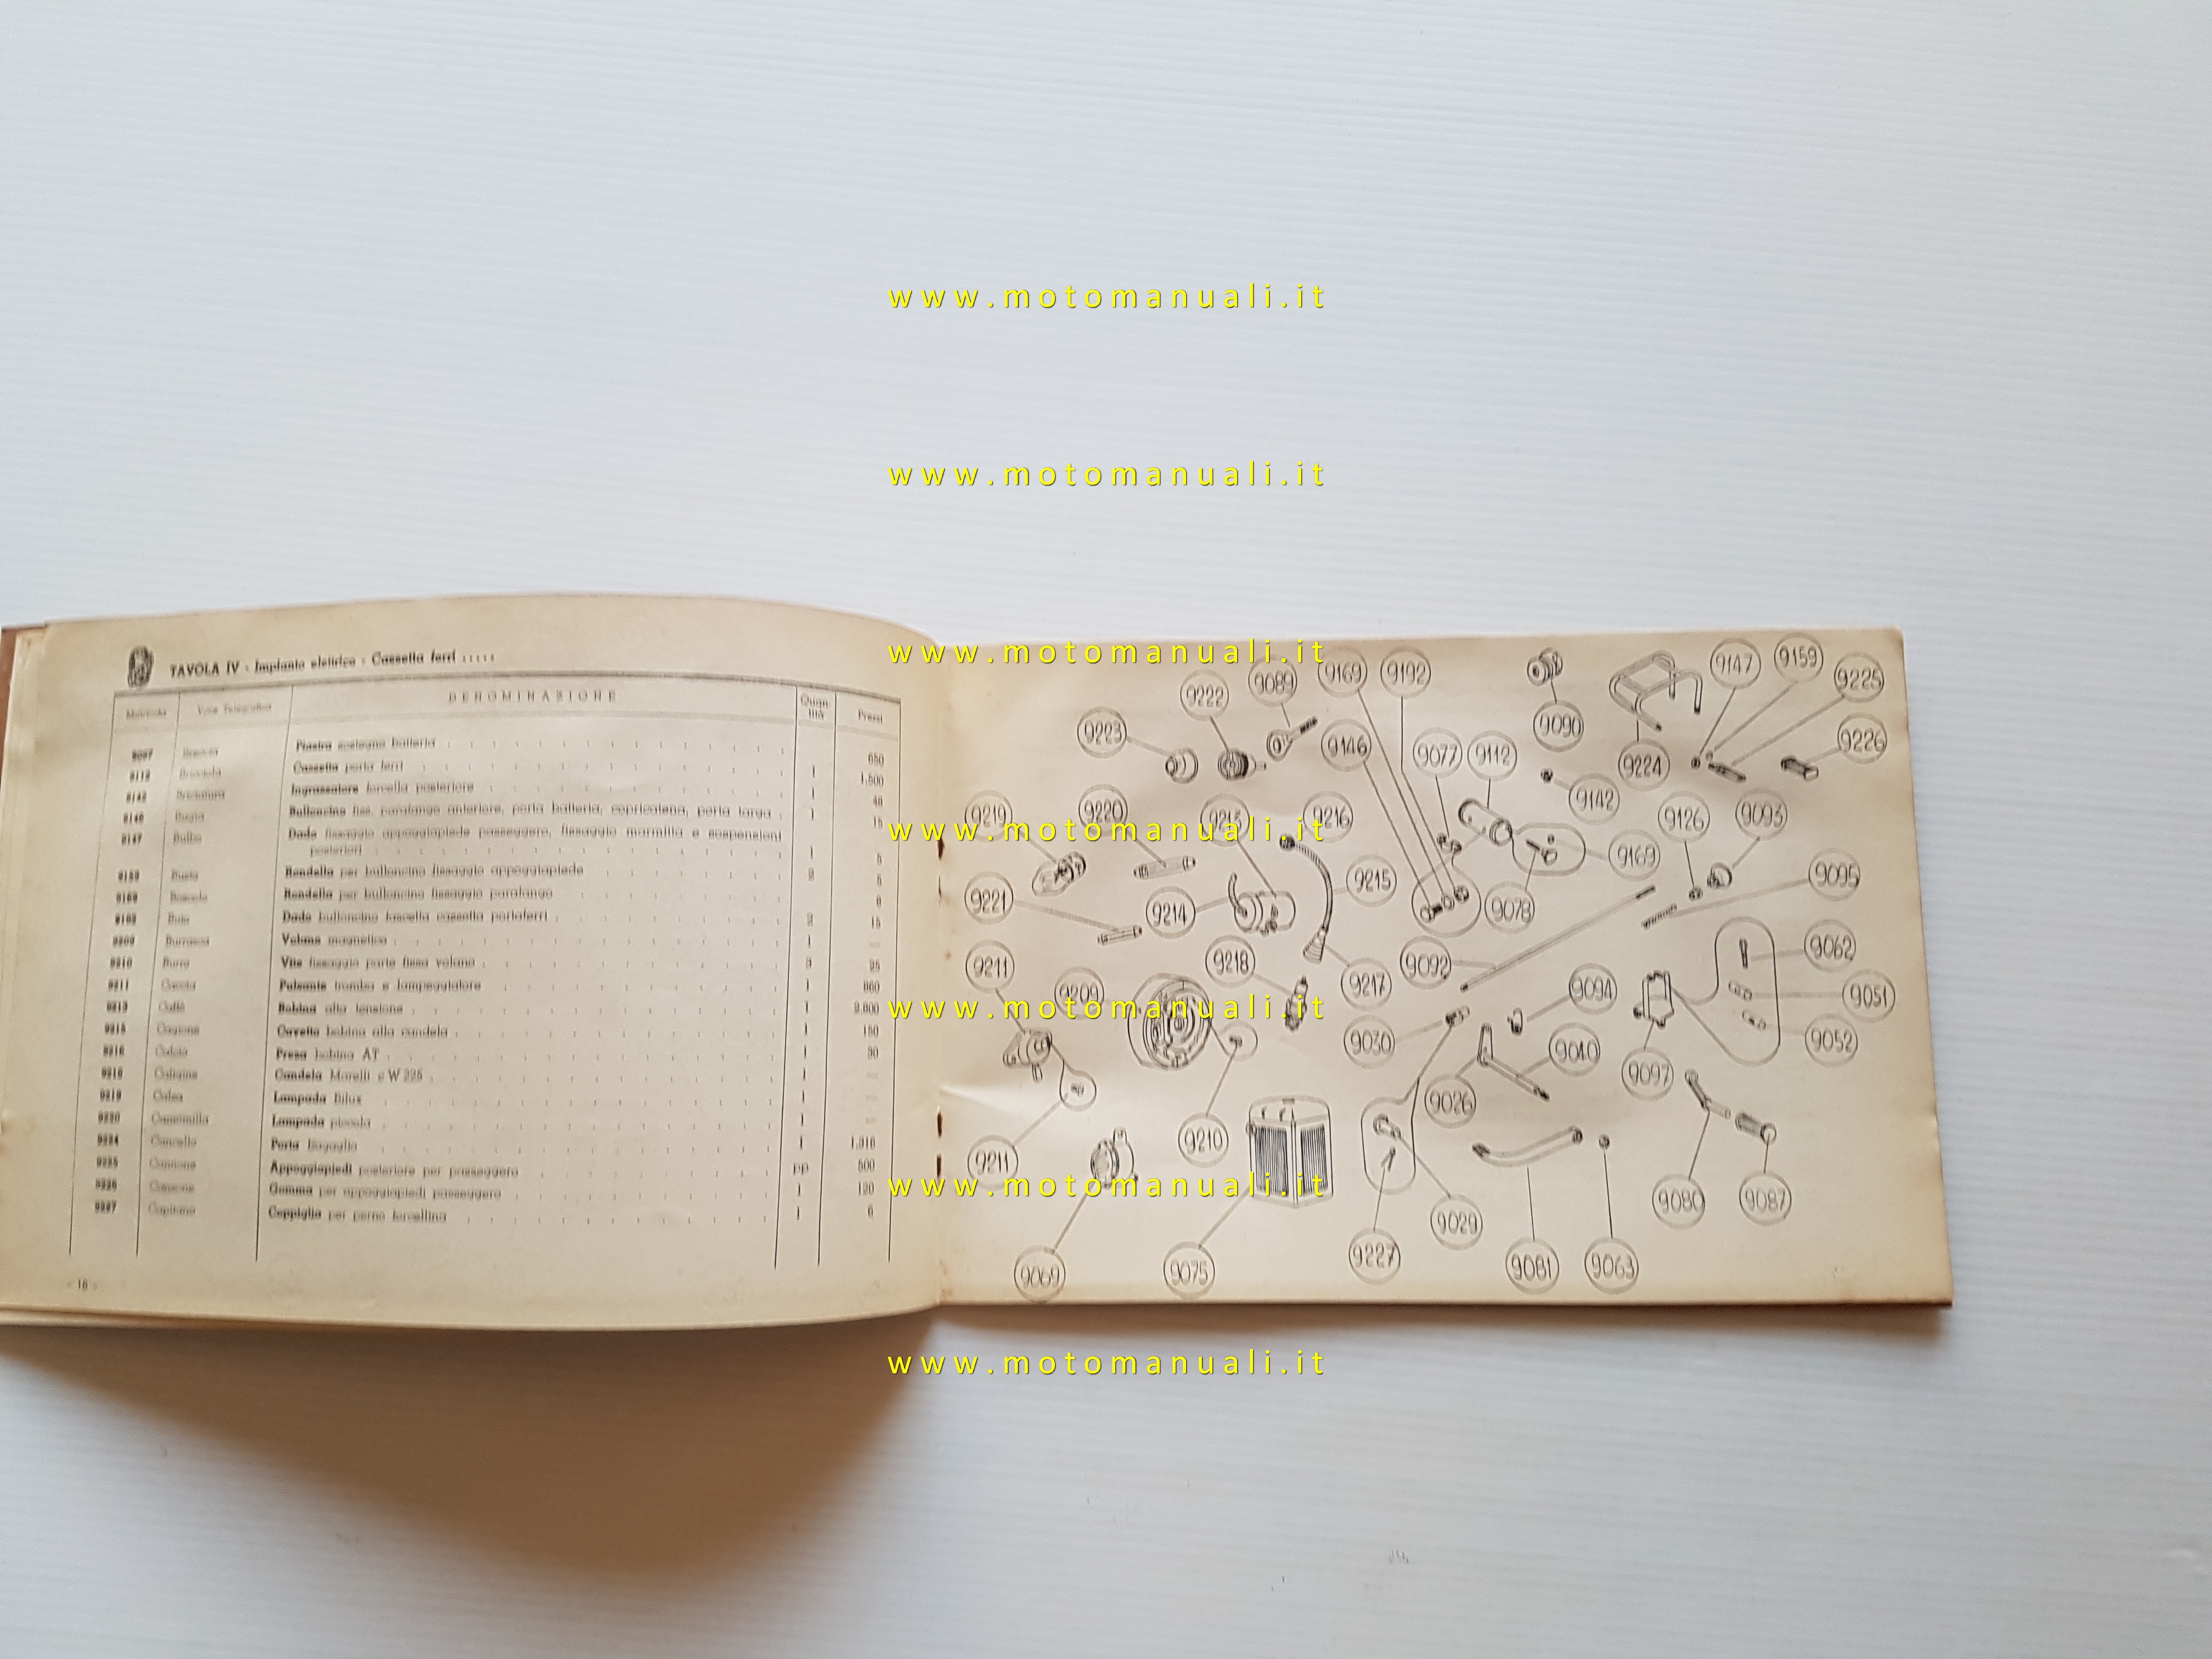 www.motomanuali.it
www.motomanuali.it
www.motomanuali.it
www.motomanuali.it
www.motomanuali.it
www.motomanuali.it
www.motomanuali.it
TAVOLA IV - Impianto elettrico - Cassetta ferri
DENOMINAZIONE
Quan
tità
Prezzi
9097 Piastra sostegno batteria 650
9112 Cassetta porta ferri 1 1.500
9142 Ingrassatore forcella posteriore 1
9146 Bulloncino fiss. parafango anteriore, porta batteria, copricatena, porta targa 1 15
9147 Dado fissaggio appoggiapiede passeggero, fissaggio marmitta e sospensioni
posteriori 1 5
9159 Rondella per bulloncino fissaggio appoggiapiede 2 5
9169 Rondella per bulloncino fissaggio parafango
9192 Dado bulloncino fascetta cassetta portaferri 2 15
9209 Volano magnetico 1 —
9210 Vite fissaggio parte fissa volano 3 25
9211 Pulsante tromba e lampeggiatore 1
9213 Caffè Bobina alta tensione 1
9215 Cagione Cavetto bobina alla candela 1 150
9216 Presa bobina AT 1
9218 Candela Marelli CW 225 1 —
9219 Lampada Bilux 1 —
9220 Camomilla Lampada piccola 1 —
9224 Cancello Porta bagaglio 1 1.316
9225 Cannone Appoggiapiedi posteriore per passeggero pp 500
9226 Canzone Gomma per appoggiapiedi passeggero 1 120
9227 Capitano Coppiglia per perno forcellina 1
- 18 -
9223
9222
9089
9169
9192
9090
9147
9159
9225
9224
9226
9146
9077
9112
9142
9219
9220
9213
9216
9126
9093
9169
9221
9214
9215
9078
9095
9211
9209
9218
9217
9092
9094
9062
9051
9030
9040
9052
9097
9026
9211
9210
9080
9087
9029
9069
9075
9227
9081
9063